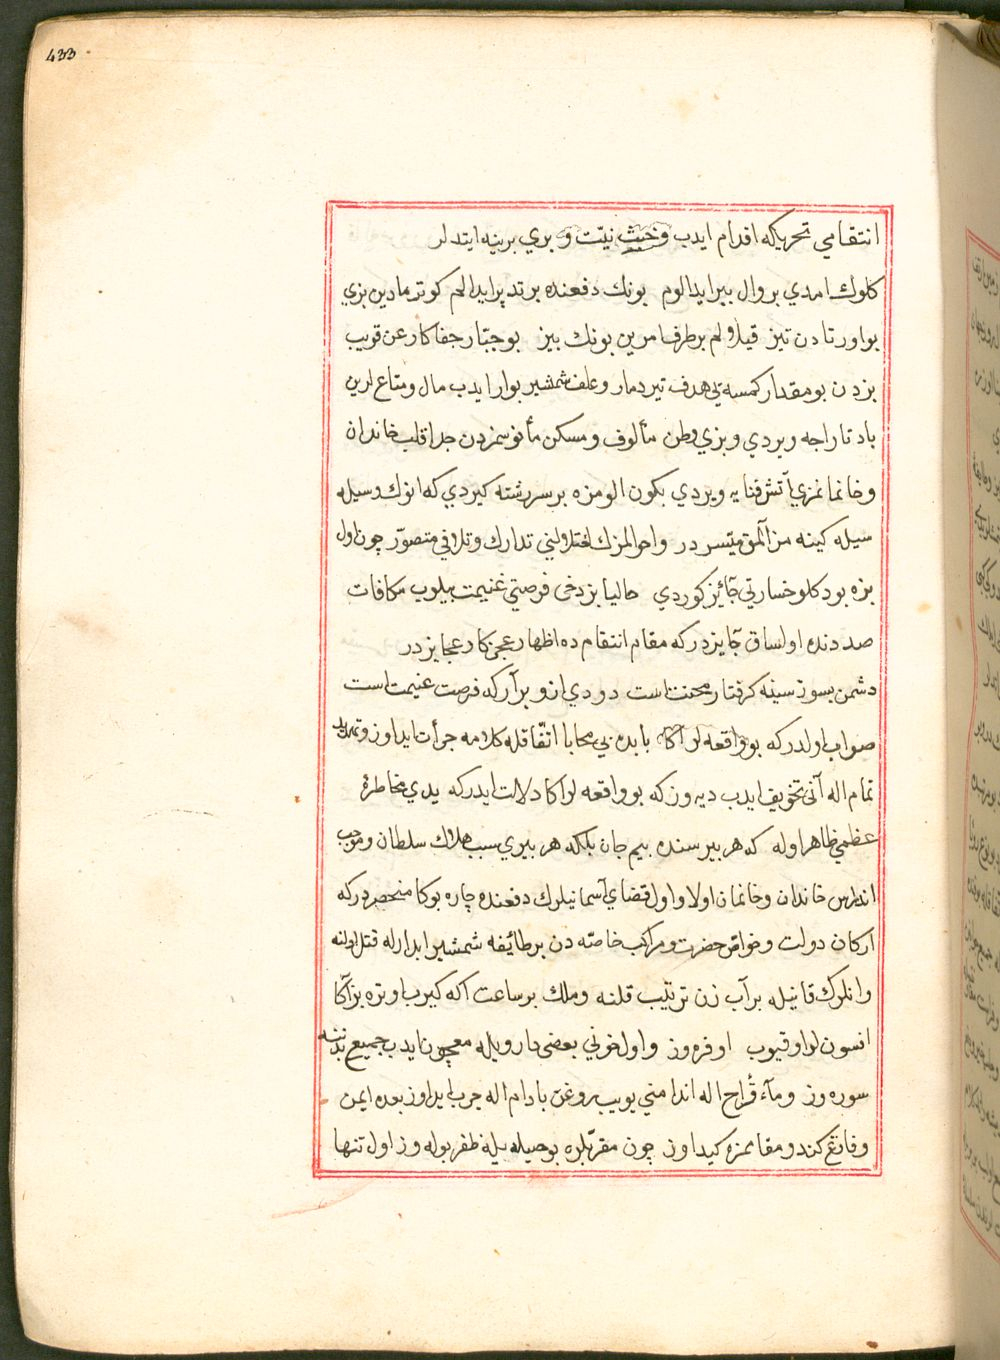 433
انتقامي تحريكه اقدام ايدب وخبث نيّت و بري برينه ايتدلر
كلوك امدي بر وال بير ايدالوم بونك دفعنده بر تدبير ايدالم كوترمادين بزي
بو اورتادن تيز قيلاولم بر طرف امرين بونك بيز بو جبّار جفاكار عن قريب
بزدن بو مقدار كمسه يي هدف تير دمار و علف شمشير بوار ايدب مال و متاعلرين
باد تاراجه ويردي و بزي وطن مألوف و مسكن مأنوسمزدن جدا قلب خاندان
و خانمانمزي آتش فنايه ويردي بكون الومزه بر سررشته كيردي كه انوك وسيله
سيله كينه مز آلمق ميّسر در و احوالمزك اختلالني تدارك و تلافي متصوّر چون اول
بزه بو دكلو خسارتي جآئز كوردي حاليا بز دخى فرصتي غنيمت بيلوب مكافات
صددنده اولساق جآيزدر كه مقام انتقام ده اظهار عجز كار عجايزدر
دشمن بسوز سينه كرفتار محنت است دودي ازو برآر كه فرصت غنيمت است
صواب اولدر كه بو واقعه لر آكا بابنده بي محابا اتّفاقله كلامه جرأت ايداوز و تهديد
تمام اله آنى تخويف ايدب ديه وز كه بو واقعه لر اكا دلالت ايدر كه يدي مخاطرهٔ
عظمي ظاهر اوله كه هر بيرسنده بيم جان بلكه هر بيري سبب هلاك سلطان و موجب
اندراس خاندان و خانمان اولا و اول قضاي آسمانيلرك دفعنده چاره بوكا منحصر در كه
اركان دولت و خواصّ حضرت و مراكب خاصّه دن بر طائفه شمشير ابدارله قتل اولنه
و انلرك قانيله بر آب زن ترتيب قلنه و ملك بر ساعت اكه كيرب اوتره بز آكا
افسونلر اوقيوب اوفره وز و اول خوني بعضى دارويله معجون ايدب جميع بدننه
سوره وز و مآء قراح اله اندامني يويب روغن بادام اله چرب ايداوز بعده ايمن
و فارغ كندو مقامزه كيداوز چون مقرّبلره بو حيله يله ظفر بوله وز اول تنها